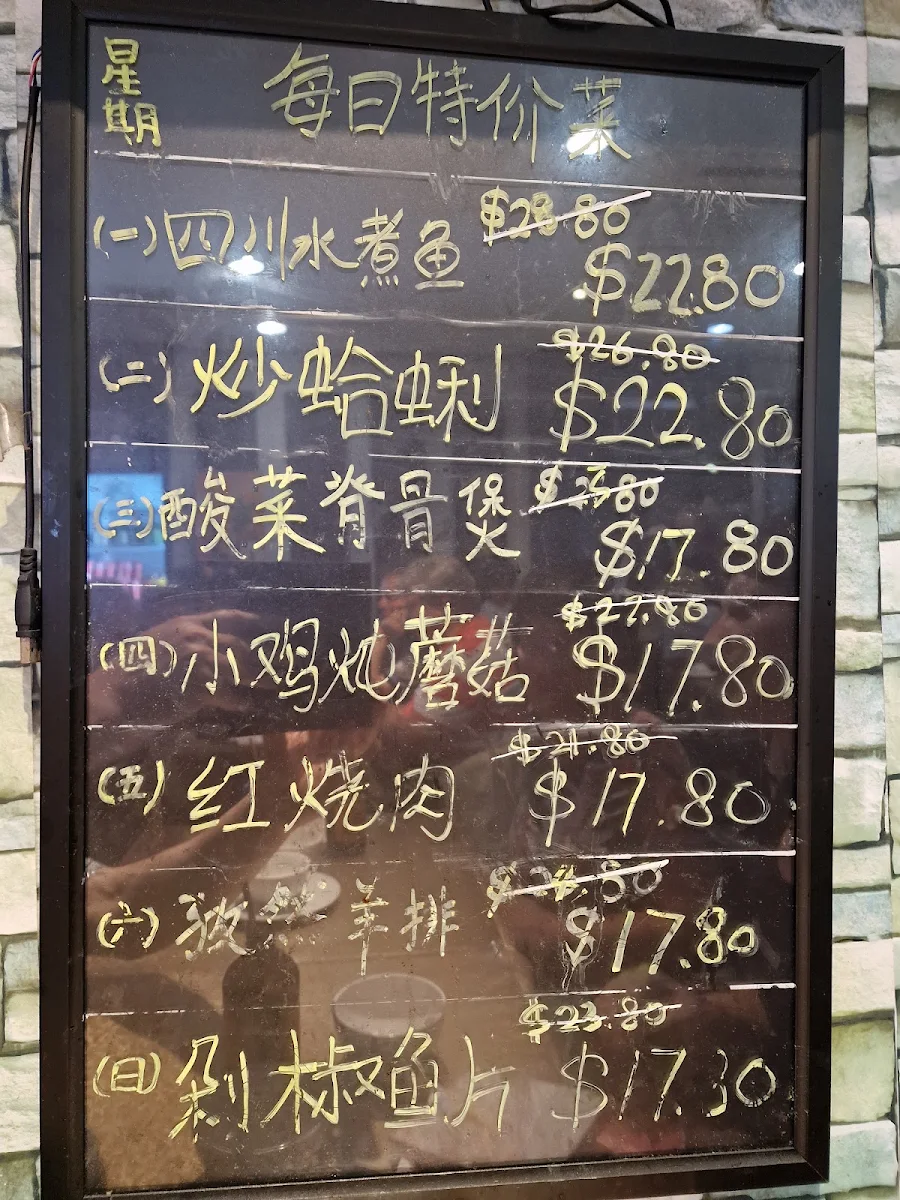 星期 每日特价菜
(一)四川水煮鱼 $28.80
$22.80
(二)炒蛤蜊 $26.80
$22.80
(三)酸菜脊骨煲 $23.80
$17.80
(四)小鸡炖蘑菇 $27.80
$17.80
(五)红烧肉 $21.80
$17.80
(六) 羊排
$17.80
(日)剁椒鱼片 $23.80
$17.30